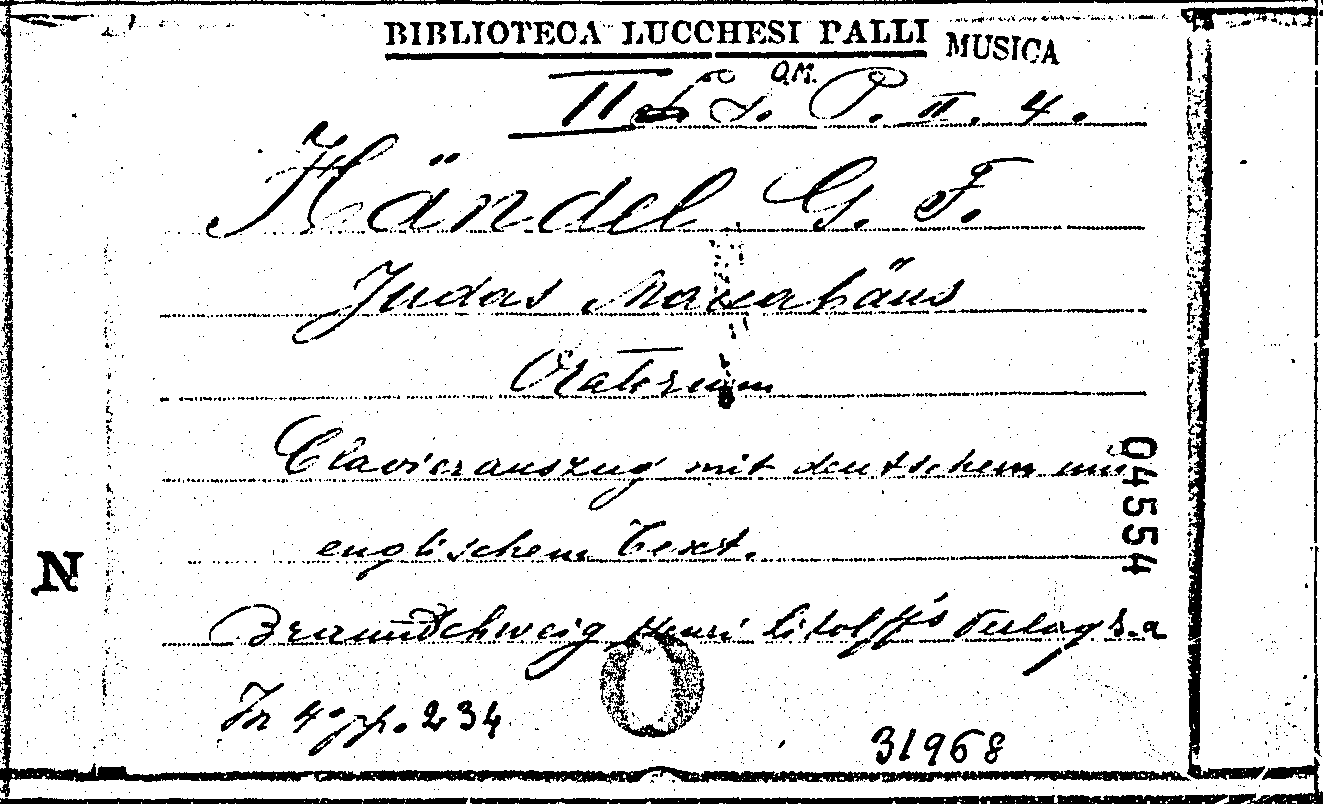 BIBLIOTECA LUCCHESI PALLI MUSICA
O.M.
P. II. 4.
Händel G. F.
Judas Maccabäus
Oratorium
Clavierauszug mit deutschem und
04554
englischem Text.
N
Braunschweig Henri Litolff's Verlag s.a
In 4° pp. 234
31968